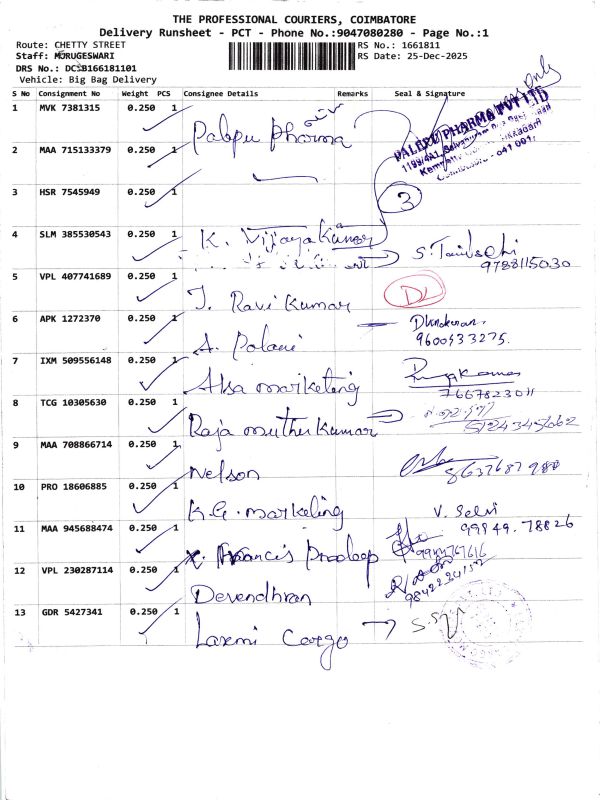 THE PROFESSIONAL COURIERS, COIMBATORE
Delivery Runsheet - PCT - Phone No.:9047080280 - Page No.:1
Route: CHETTY STREET
RS No.: 1661811
Staff: MURUGESWARI
RS Date: 25-Dec-2025
DRS No.: DCSB166181101
Vehicle: Big Bag Delivery
S No Consignment No Weight PCS Consignee Details Remarks Seal & Signature
1 MVK 7381315 0.250 1 Palepu Pharma
PALEPU PHARMA PVT LTD
2 MAA 715133379 0.250 1
3 HSR 7545949 0.250 1
3
4 SLM 385530543 0.250 1 K. Vijaya Kumar
9788115030
5 VPL 407741689 0.250 1 J. Ravi Kumar DL
6 APK 1272370 0.250 1 A. Palani
9600533275.
7 IXM 509556148 0.250 1 Alsa marketing
7667823011
8 TCG 10305630 0.250 1 Raja muthu kumar
9 MAA 708866714 0.250 1 Nelson
8637687980
10 PRO 18606885 0.250 1 K.G. marketing V. Selvi
99949.78826
11 MAA 945688474 0.250 1 Francis Pradeep
12 VPL 230287114 0.250 1 Devendhran
13 GDR 5427341 0.250 1 Laxmi Cargo